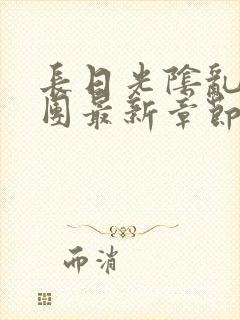 長日光陰亂
團最新章節
而消